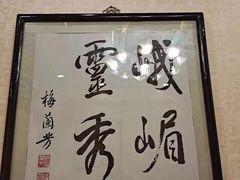 峨嵋
靈秀
梅蘭芳